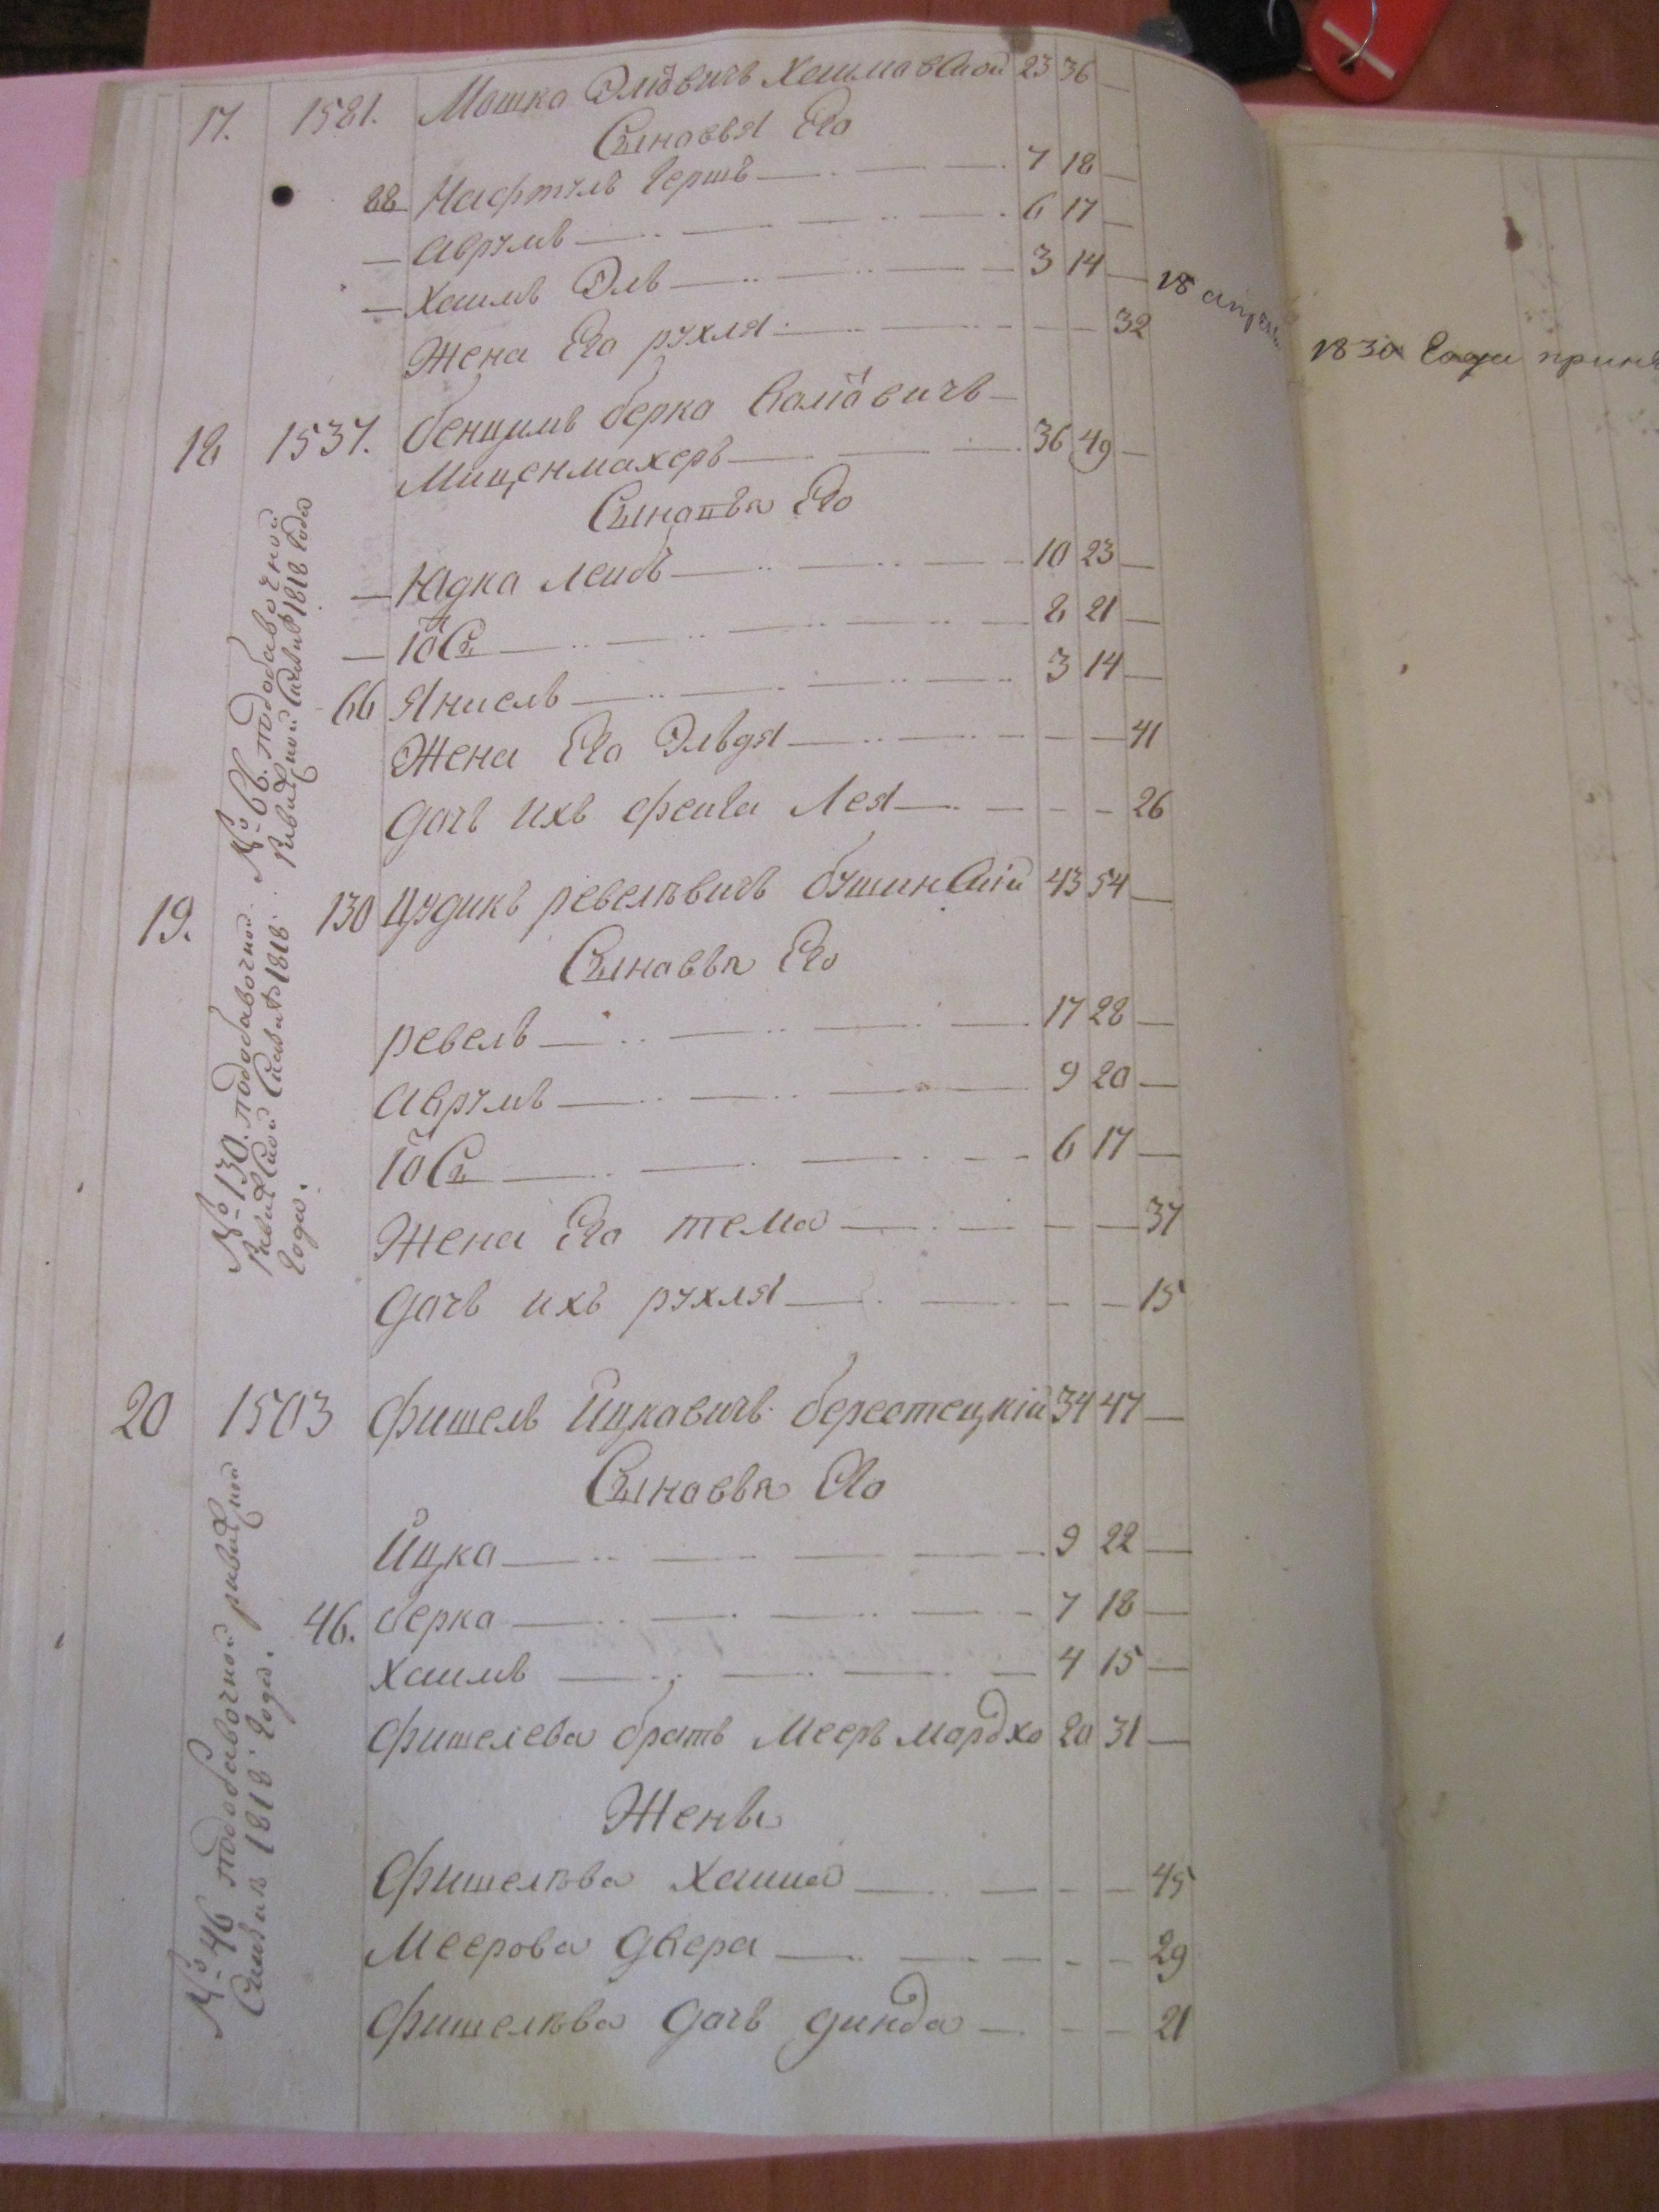 17. 1581. Мошко Элiовичъ Хаимовской 23 36 —
Сыновья Его
88 Нафтуль Гершъ — 7 18 —
— Аврумъ — 6 17 —
— Хаимъ Эль — 3 14 — 18 апреля
1830 Года приня
Жена Его рухля — 32
18 1537. Бенцымъ берко
Миценмахеръ — 36 49 —
Сыновья Его
— Юдка Лейбъ — 10 23 —
— Iось — 8 21 —
66 Янкель — 3 14 —
Жена Его Эльдя — 41
Дочь ихъ фейга Лея — 26
№ 66. подобавочной
ревизской Сказкѣ 1818 Года
19. 130 Цудикъ ревелѣвичъ бушинскiй 43 54 —
Сыновья Его
ревель — 17 28 —
Аврумъ — 9 20 —
Iось — 6 17 —
Жена Его тема — 37
Дочь ихъ рухля — 15
№ 130. подобавочной
ревизской Сказкѣ 1818
Года.
20 1503 Фишель Ицковичъ берестецкiй 34 47 —
Сыновья Его
Ицко — 9 22 —
46. берко — 7 18 —
Хаимъ — 4 15 —
Фишелева братъ Мееръ мордхо 20 31 —
Жены
Фишелѣва — 45
Меерова двера — 29
Фишелѣва дочь динда — 21
№ 46 подобавочной ревизской
Сказкѣ 1818 Года.